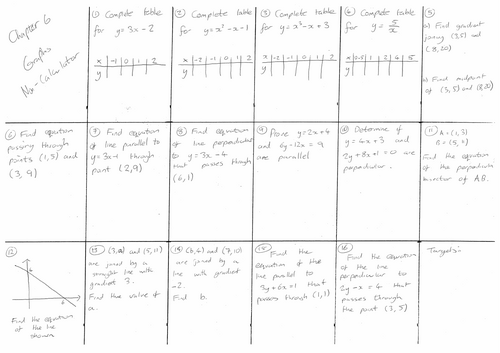 Chapter 6
Graphs
Non-Calculator
① Complete table
for y = 3x - 2
x | -1 | 0 | 1 | 2
y
② Complete table
for y = x² - x - 1
x | -2 | -1 | 0 | 1 | 2
y
③ Complete table
for y = x³ - x + 3
x | -2 | -1 | 0 | 1 | 2
y
④ Complete table
for y = 5/x
x | 0.5 | 1 | 2 | 4 | 5
y
⑤
a) Find gradient
joining (3,5) and
(8,20)
b) Find midpoint
of (3,5) and (8,20)
⑥ Find equation
passing through
points (1,5) and
(3,9)
⑦ Find equation
of line parallel to
y = 3x-1 through
point (2,9)
⑧ Find equation
of line perpendicular
to y = 3x - 4
that passes through
(6,1)
⑨ Prove y = 2x + 4
and 6y - 12x = 9
are parallel
⑩ Determine if
y = 4x + 3 and
2y + 8x + 1 = 0 are
perpendicular.
⑪ A = (1,3)
Find the equation
of the perpendicular
bisector of AB.
⑫
6
6
Find the equation
of the line
shown
⑬ (3,a) and (5,11)
are joined by a
straight line with
gradient 3.
Find the value of
a.
⑭ (b,4) and (7,10)
are joined by a
line with gradient
-2.
Find b.
⑮ Find the
equation of the
line parallel to
3y + 6x = 1 that
passes through (1,3)
⑯ Find the equation
of the line
perpendicular to
2y - x = 4 that
passes through
the point (3,5)